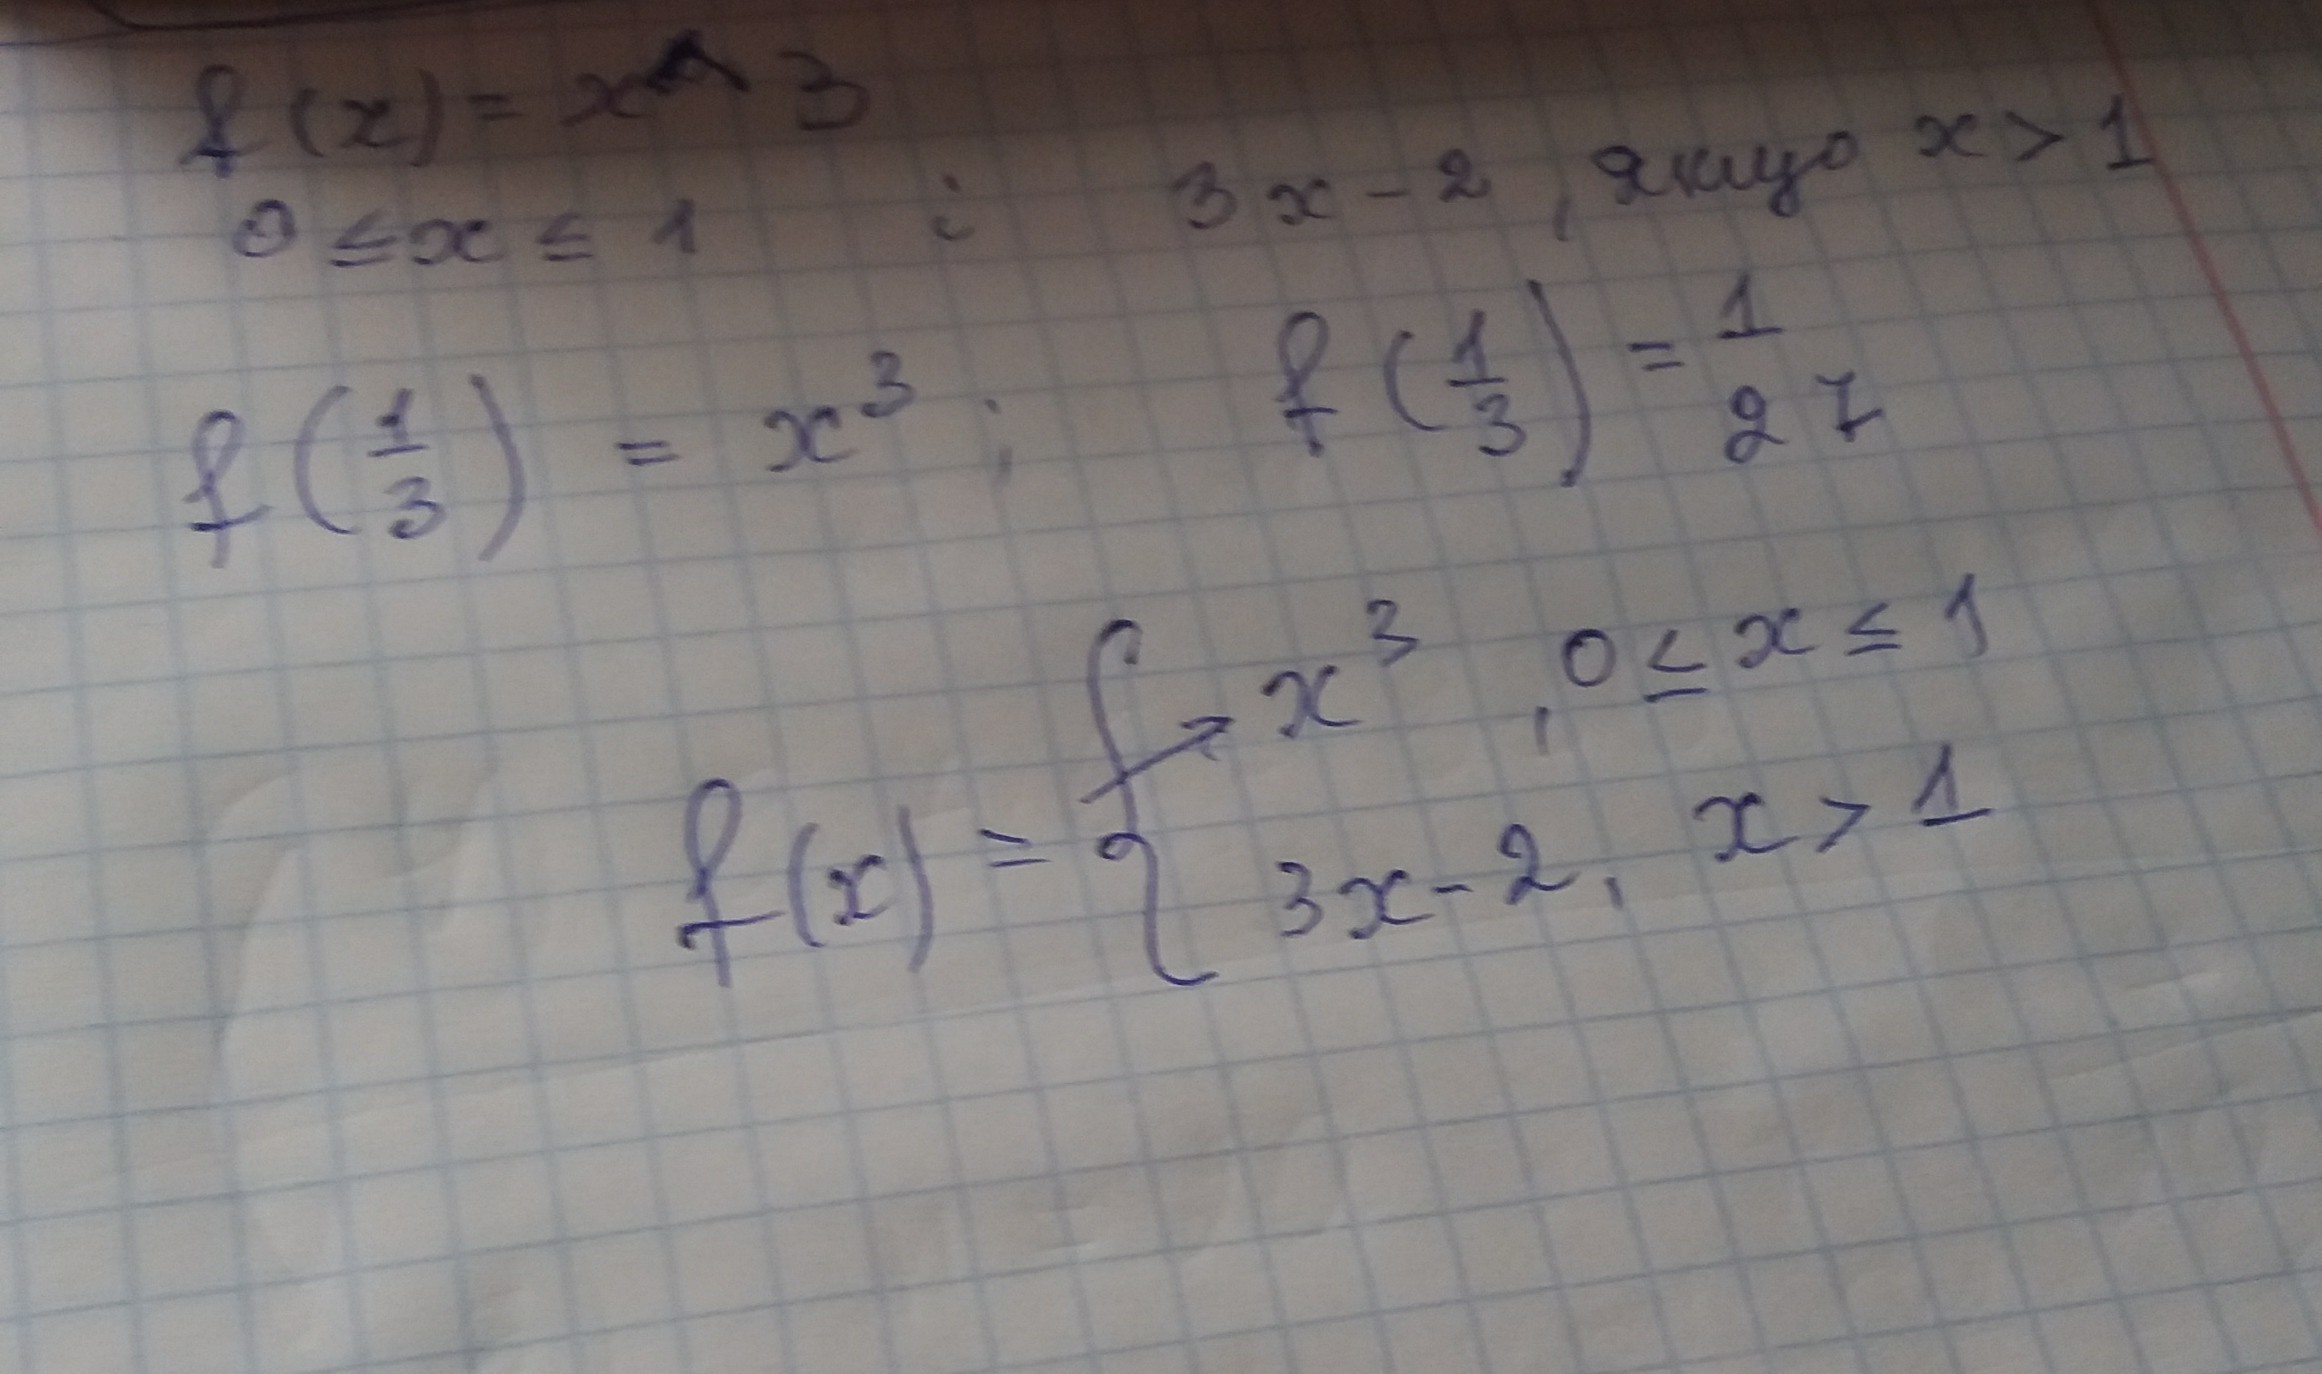 f(x) = x^3
0 ≤ x ≤ 1 i 3x - 2, якщо x > 1
f(1/3) = x³; f(1/3) = 1/27
f(x) = { x³, 0 ≤ x ≤ 1
3x - 2, x > 1